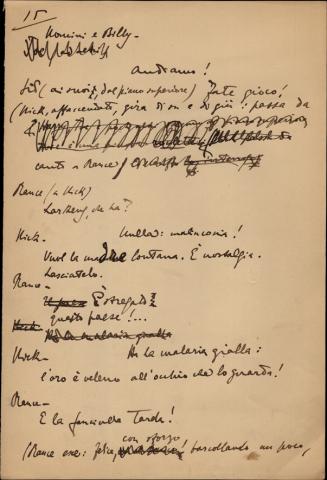 15
Uomini e Billy -
Andiamo!
Sid (ai suoi, dal piano superiore) Fate gioco!
(Nick, affaccendato, gira di su e di giù: passa da
canto a Rance)
Rance (a Nick)
Larkens, che ha?
Nick - Nulla: malinconia!
Vuol la madre lontana. È nostalgia.
Lasciatelo.
Rance -
È stregato
questo paese!...
Nick - Ha la malaria gialla:
l'oro è veleno all'occhio che lo guarda!
Rance -
E la fanciulla tarda!
(Rance esce: Felice, con sforzo barcollando un poco,